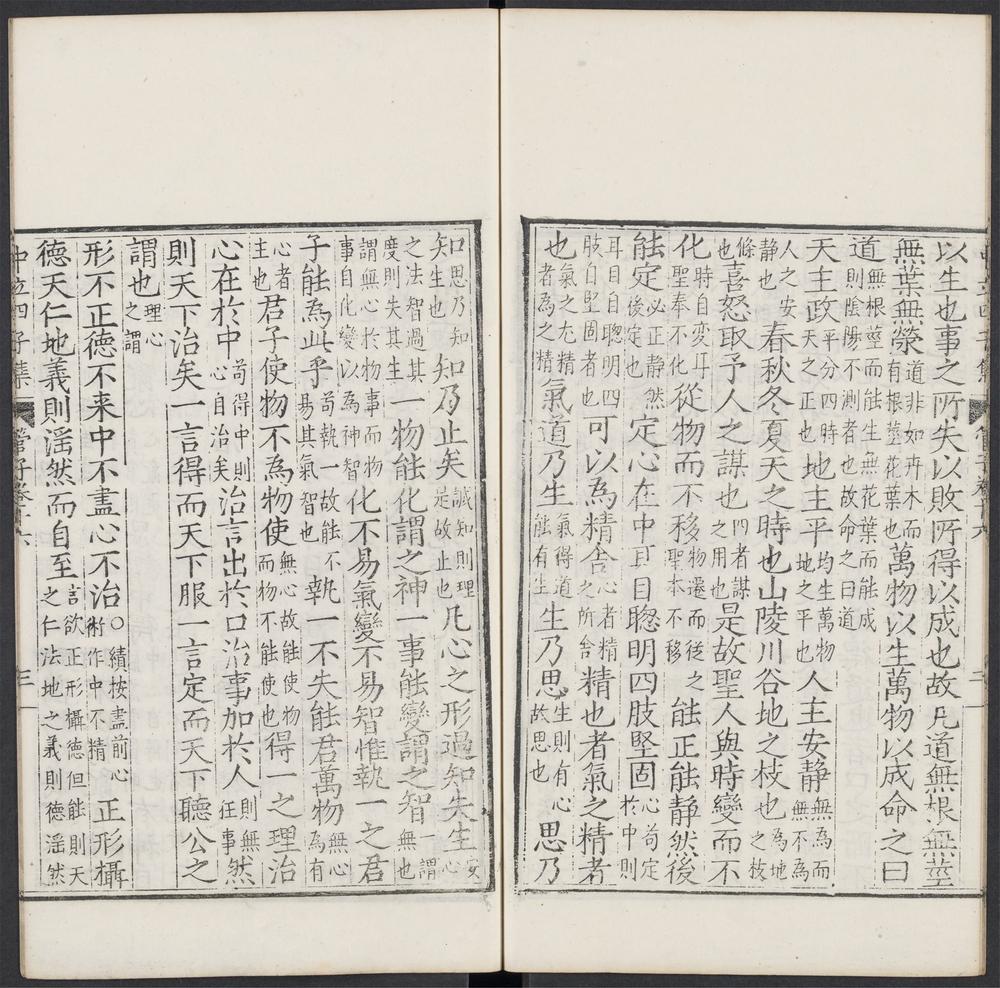 以生也事之所失以敗所得以成也故凡道無根無莖
無葉無榮道非如卉木而有根莖花葉也萬物以生萬物以成命之曰
道無根莖而能生無花葉而能成則陰陽不測者也故命之曰道
天主政平分四時天之正也地主平均生萬物地之平也人主安靜無為而無不為
人之安靜也春秋冬夏天之時也山陵川谷地之枝也為地之枝
條也喜怒取予人之謀也四者謀之用也是故聖人與時變而不
化時自変耳聖奉不化從物而不移物遷而後之聖本不移能正能靜然後
能定必正靜然後定也定心在中耳目聦明四肢堅固心苟定於中則
耳目自聦明四肢自堅固者也可以為精舍心者精之所舍精也者氣之精者
也氣之尢精者為之精氣道乃生氣得道能有生生乃思生則有心故思也思乃
知思乃知知生也知乃止矣誠知則理是故止也凡心之形過知失生安心
之法智過其度則失其生一物能化謂之神一事能變謂之智一謂無也
謂無心於物事而物事自化變以為神智化不易氣變不易智惟執一之君
子能為此乎苟執一故能不昜其氣智也執一不失能君萬物無心為有
心者主也君子使物不為物使無心故能使物而物不能使也得一之理治
心在於中苟得中則心自治矣治言出於口治事加於人則無任事然
則天下治矣一言得而天下服一言定而天下聽公之
謂也理心之謂
形不正德不来中不盡心不治○績按盡前心術作中不精正形攝
德天仁地義則滛然而自至言欲正形攝德但能則天之仁法地之義則德滛然
中立四子集
管子卷十六
三